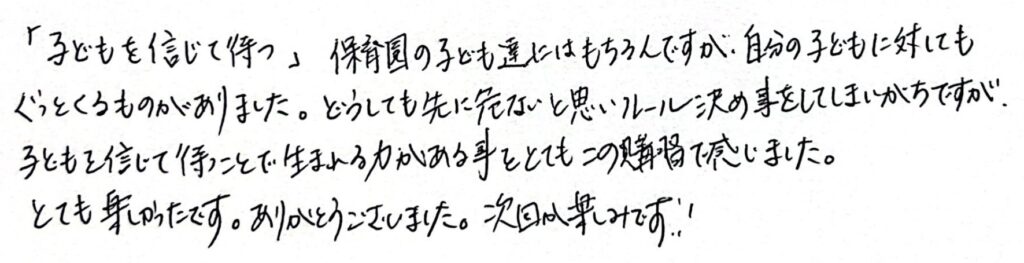 「子どもを信じて待つ」 保育園の子ども達にはもちろんですが、自分の子どもに対しても
ぐっとくるものがありました。どうしても先に危ないと思いルール決め事をしてしまいがちですが、
子どもを信じて待つことで生まれる力がある事をとてもこの購習で感じました。
とても楽しかったです。ありがとうございました。次回が楽しみです!!